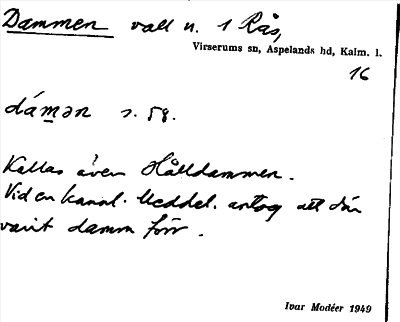 Dammen vall n. 1 Rås,
Virserums sn, Aspelands hd, Kalm. l.
16
dámən s. 58.
Kallas även Hålldammen.
Vid en kanal. Meddel. antog att där
varit damm förr.
Ivar Modéer 1949